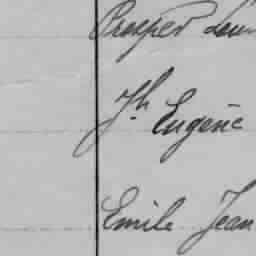 Prosper Lou
Jh Eugène
Emile Jean